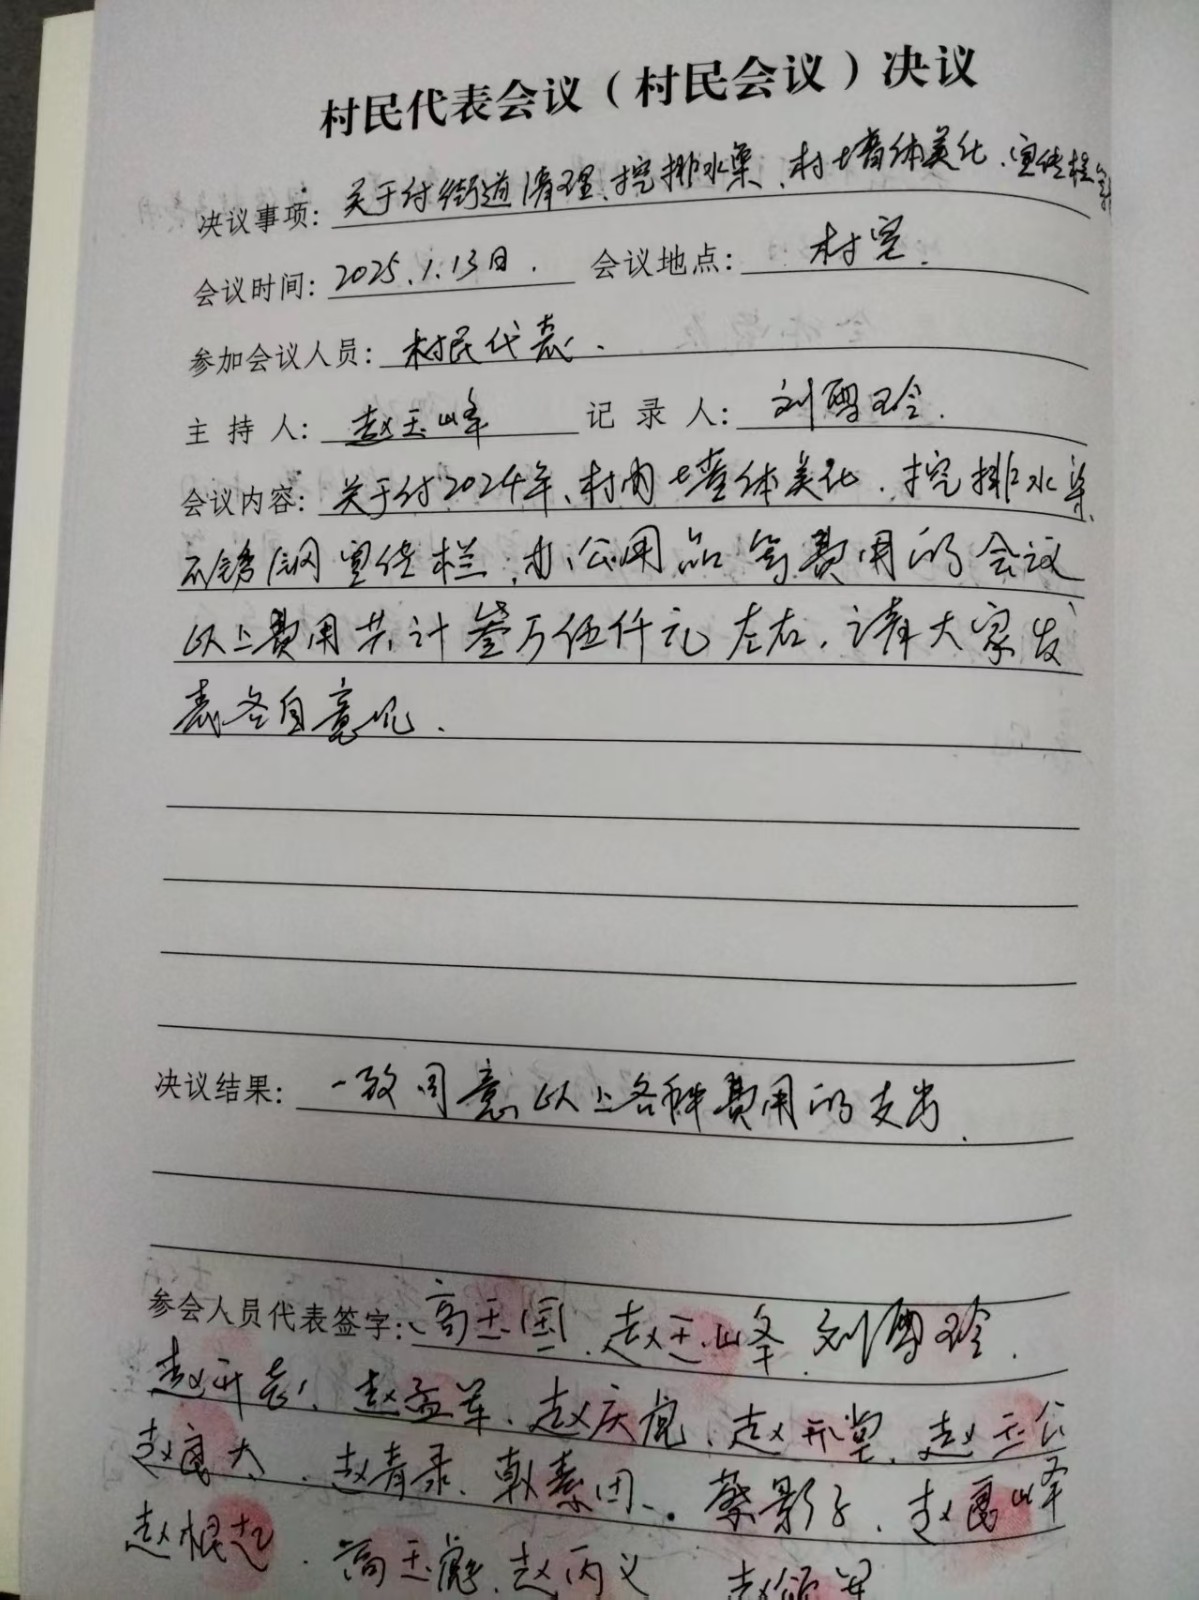 村民代表会议（村民会议）决议
决议事项：关于付街道清理、挖排水渠、村墙体美化、宣传栏等
会议时间：2025.1.13日. 会议地点：村室.
参加会议人员：村民代表.
主持人：赵玉峰 记录人：刘雪玲.
会议内容：关于付2024年、村内墙体美化、挖排水渠
不锈钢宣传栏、办公用品等费用的会议
以上费用共计叁万伍仟元左右，请大家发
表各自意见.
决议结果：一致同意以上各种费用的支出.
参会人员代表签字：高玉国、赵玉峰 刘雪玲.
赵开、赵孟军、赵庆虎、赵开堂、赵玉
赵大、赵青录、素田、蔡影子、赵峰
赵根起、高玉彪、赵丙义 赵军